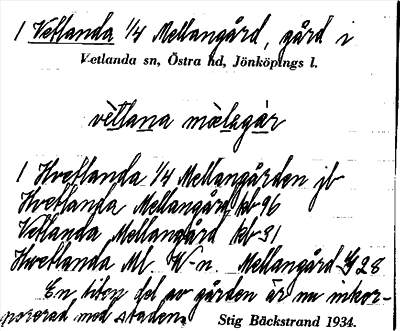 1 Vetlanda 1/4 Mellangård, gård i
Vetlanda sn, Östra hd, Jönköpings l.
vètlana mælagár
1 Hvetlanda 1/4 Mellangården jb
Hvetlanda Mellangård kb 96
Vetlanda Mellangård kb 31
Hwetlanda Ml. W-n. Mellangård G 28
En liten del av gården är nu inkor-
porerad med staden.
Stig Bäckstrand 1934.